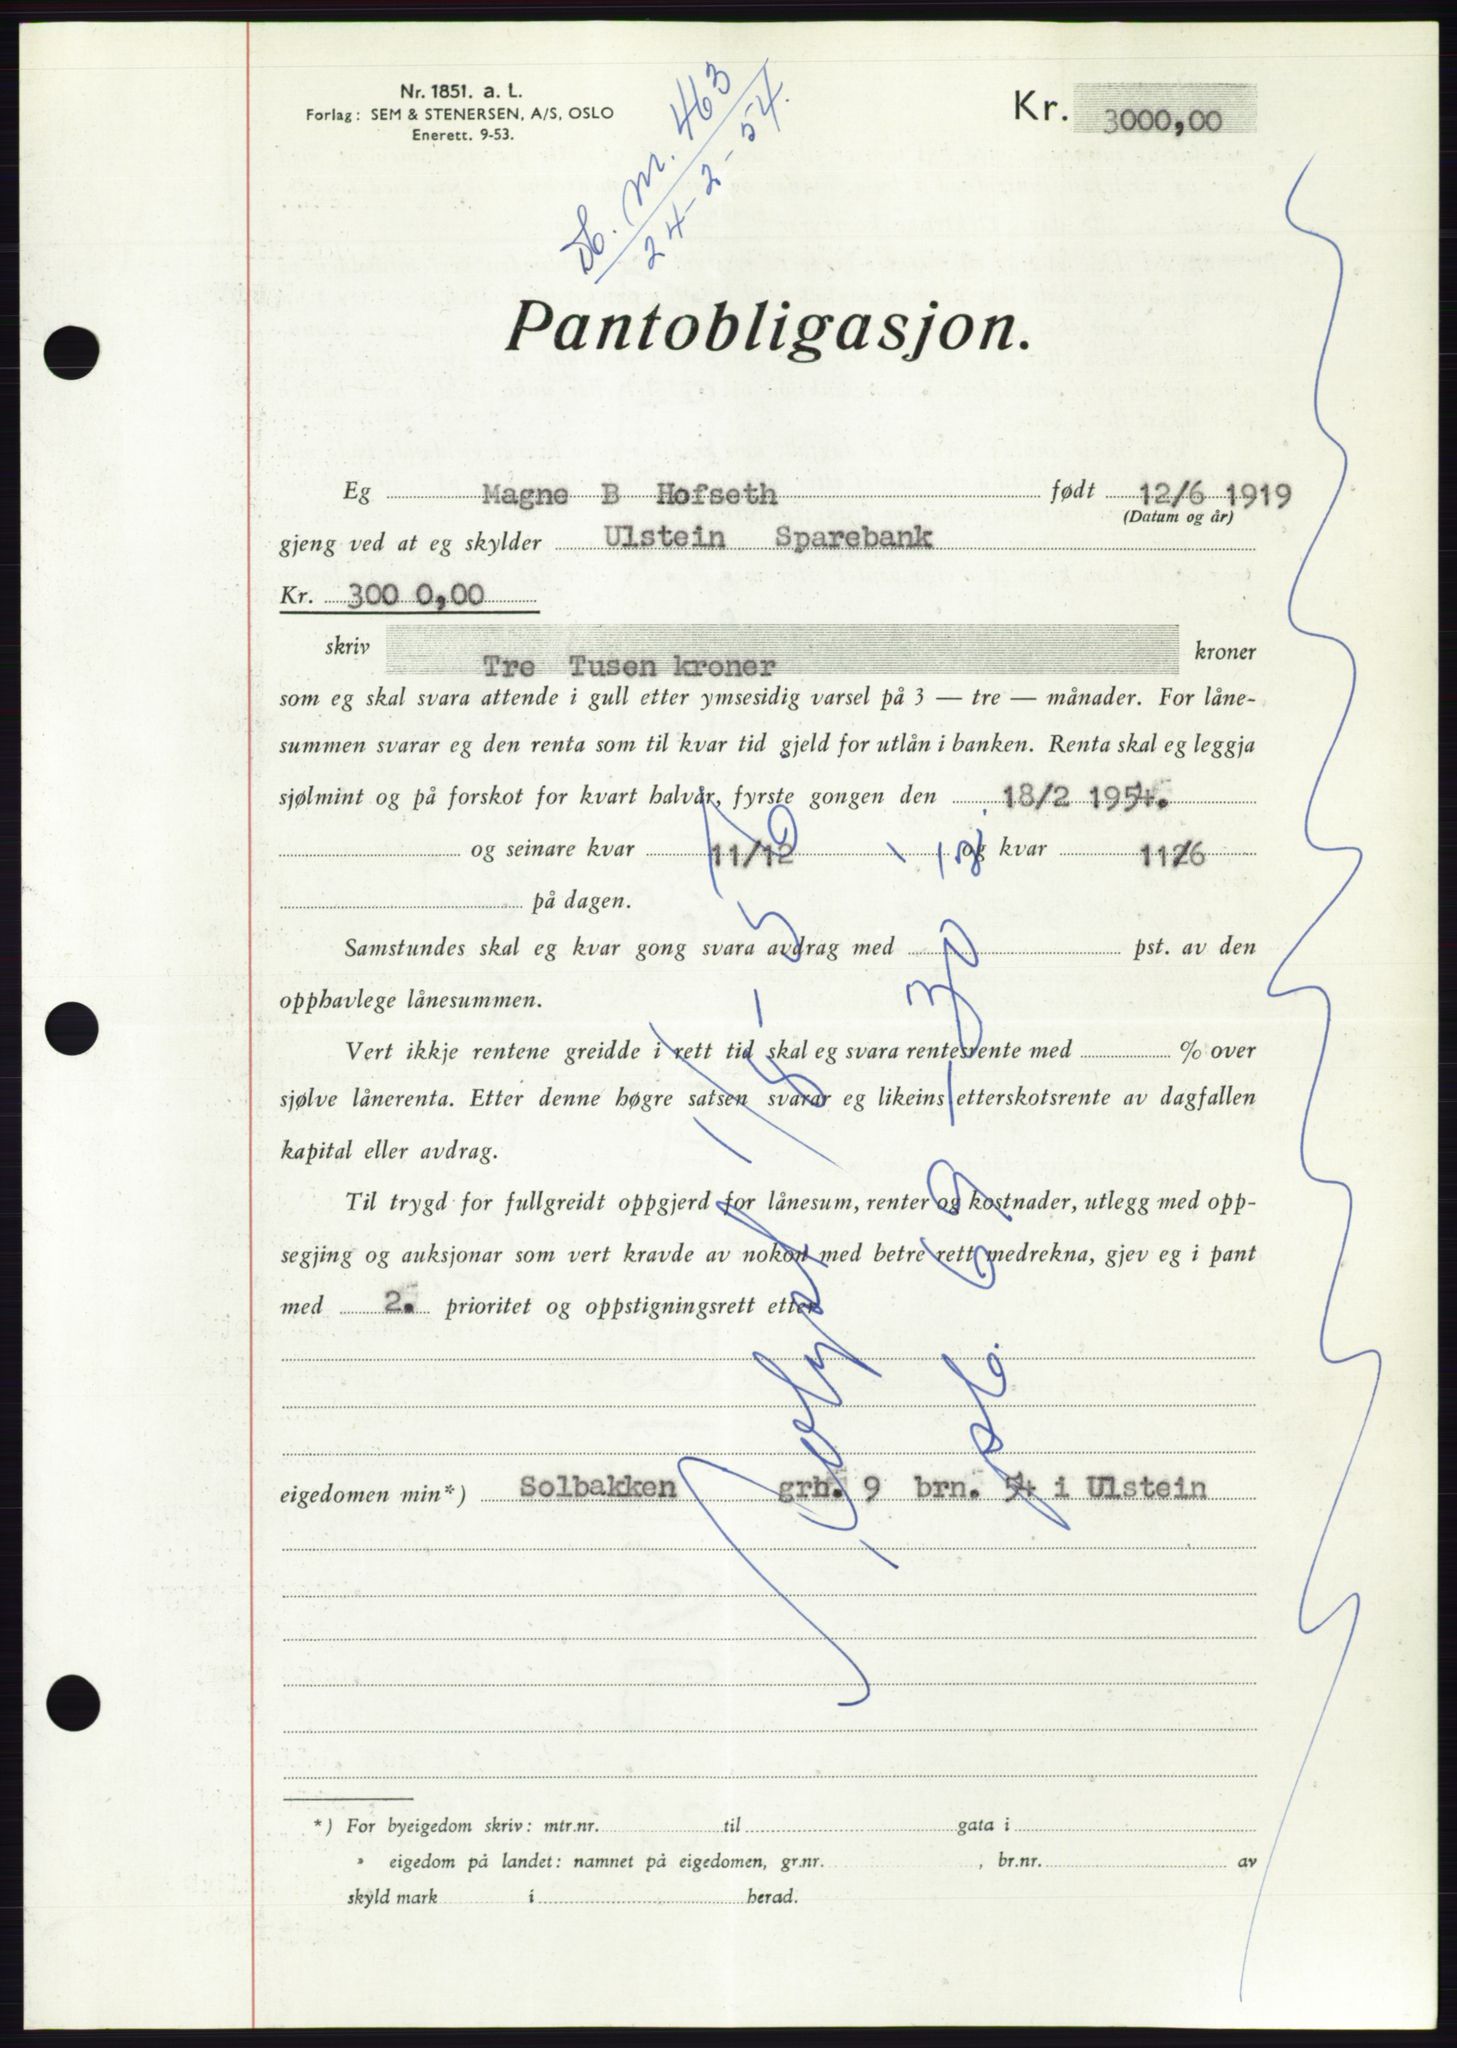 Nr. 1851. a. L.
Forlag: SEM & STENERSEN, A/S, OSLO
Enerett. 9-53.
Db. nr. 463
24-2-54.
Kr. 3000,00
Pantobligasjon.
Eg Magne B Hofseth født 12/6 1919
(Datum og år)
gjeng ved at eg skylder Ulstein Sparebank
Kr. 300 0,00
skriv Tre Tusen kroner kroner
som eg skal svara attende i gull etter ymsesidig varsel på 3 — tre — månader. For låne-
summen svarar eg den renta som til kvar tid gjeld for utlån i banken. Renta skal eg leggja
sjølmint og på forskot for kvart halvår, fyrste gongen den 18/2 1954.
og seinare kvar 11/12 og kvar 11/6
på dagen.
Samstundes skal eg kvar gong svara avdrag med pst. av den
opphavlege lånesummen.
Vert ikkje rentene greidde i rett tid skal eg svara rentesrente med % over
sjølve lånerenta. Etter denne høgre satsen svarar eg likeins etterskotsrente av dagfallen
kapital eller avdrag.
Til trygd for fullgreidt oppgjerd for lånesum, renter og kostnader, utlegg med opp-
segjing og auksjonar som vert kravde av nokon med betre rett medrekna, gjev eg i pant
med 2. prioritet og oppstigningsrett etter
eigedomen min*) Solbakken grh. 9 brn. 54 i Ulstein
*) For byeigedom skriv: mtr.nr. til gata i
» eigedom på landet: namnet på eigedomen, gr.nr. , br.nr. av
skyld mark i herad.